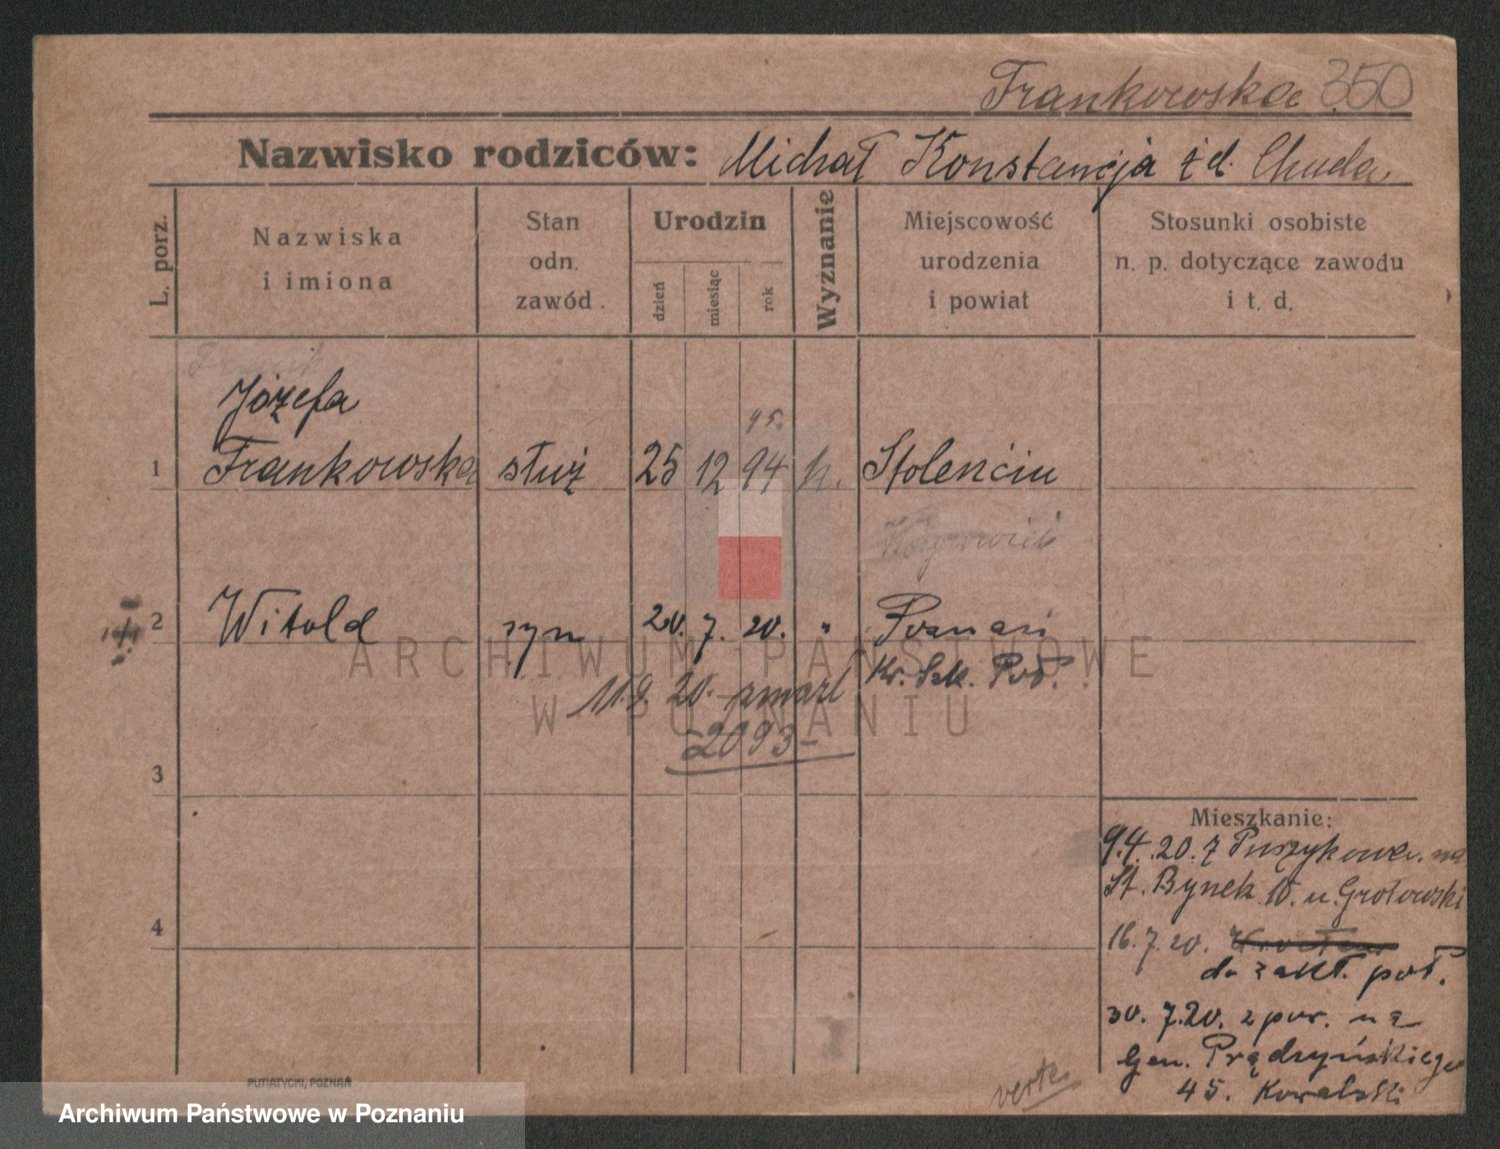 Frankowska 350
Nazwisko rodziców: Michał Konstancja żd. Chuda
L. porz.
Nazwiska
i imiona
Stan
odn.
zawód.
Urodzin
dzień
miesiąc
rok
Wyznanie
Miejscowość
urodzenia
i powiat
Stosunki osobiste
n. p. dotyczące zawodu
i t. d.
Józefa
95.
1 Frankowska służ 25 12 94 k. Stolenciu
2 Witold syn 20. 7. 20. " Poznań
Kr. Szk. Poł.
11.9. 20. zmarł
2093-
3
4
Mieszkanie:
9.4.20. z Puszykowa. na
St. Rynek 10. u. Grołowski
16.7.20.
do zakł. poł.
30. 7.20. z pow. na
Gen. Prądzyńskiego
45. Kowalski
verte
PUTIATYCKI, POZNAŃ
ARCHIWUM PAŃSTWOWE
W POZNANIU
Archiwum Państwowe w Poznaniu